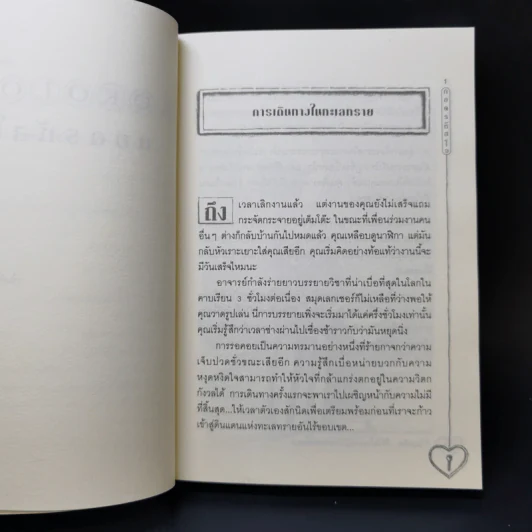 การเดินทางในทะเลทราย
ถึง เวลาเลิกงานแล้ว แต่งานของคุณยังไม่เสร็จแถม
กระจัดกระจายอยู่เต็มโต๊ะ ในขณะที่เพื่อนร่วมงานคน
อื่นๆ ต่างก็กลับบ้านกันไปหมดแล้ว คุณเหลือบดูนาฬิกา แต่มัน
กลับหัวเราะเยาะใส่คุณเสียอีก คุณเริ่มคิดอย่างท้อแท้ว่างานนี้จะ
มีวันเสร็จไหมนะ
อาจารย์กำลังร่ายยาวบรรยายวิชาที่น่าเบื่อที่สุดในโลกใน
คาบเรียน 3 ชั่วโมงต่อเนื่อง สมุดเลกเชอร์ก็ไม่เหลือที่ว่างพอให้
คุณวาดรูปเล่น นี่การบรรยายเพิ่งจะเริ่มมาได้แค่ครึ่งชั่วโมงเท่านั้น
คุณเริ่มรู้สึกว่าเวลาช่างผ่านไปเชื่องช้าราวกับว่ามันหยุดนิ่ง
การรอคอยเป็นความทรมานอย่างหนึ่งที่ร้ายกาจกว่าความ
เจ็บปวดชั่วขณะเสียอีก ความรู้สึกเบื่อหน่ายบวกกับความ
หงุดหงิดใจสามารถทำให้หัวใจที่กล้าแกร่งตกอยู่ในความวิตก
กังวลได้ การเดินทางครั้งแรกจะพาเราไปเผชิญหน้ากับความไม่มี
ที่สิ้นสุด...ให้เวลาตัวเองสักนิดเพื่อเตรียมพร้อมก่อนที่เราจะก้าว
เข้าสู่ดินแดนแห่งทะเลทรายอันไร้ขอบเขต...